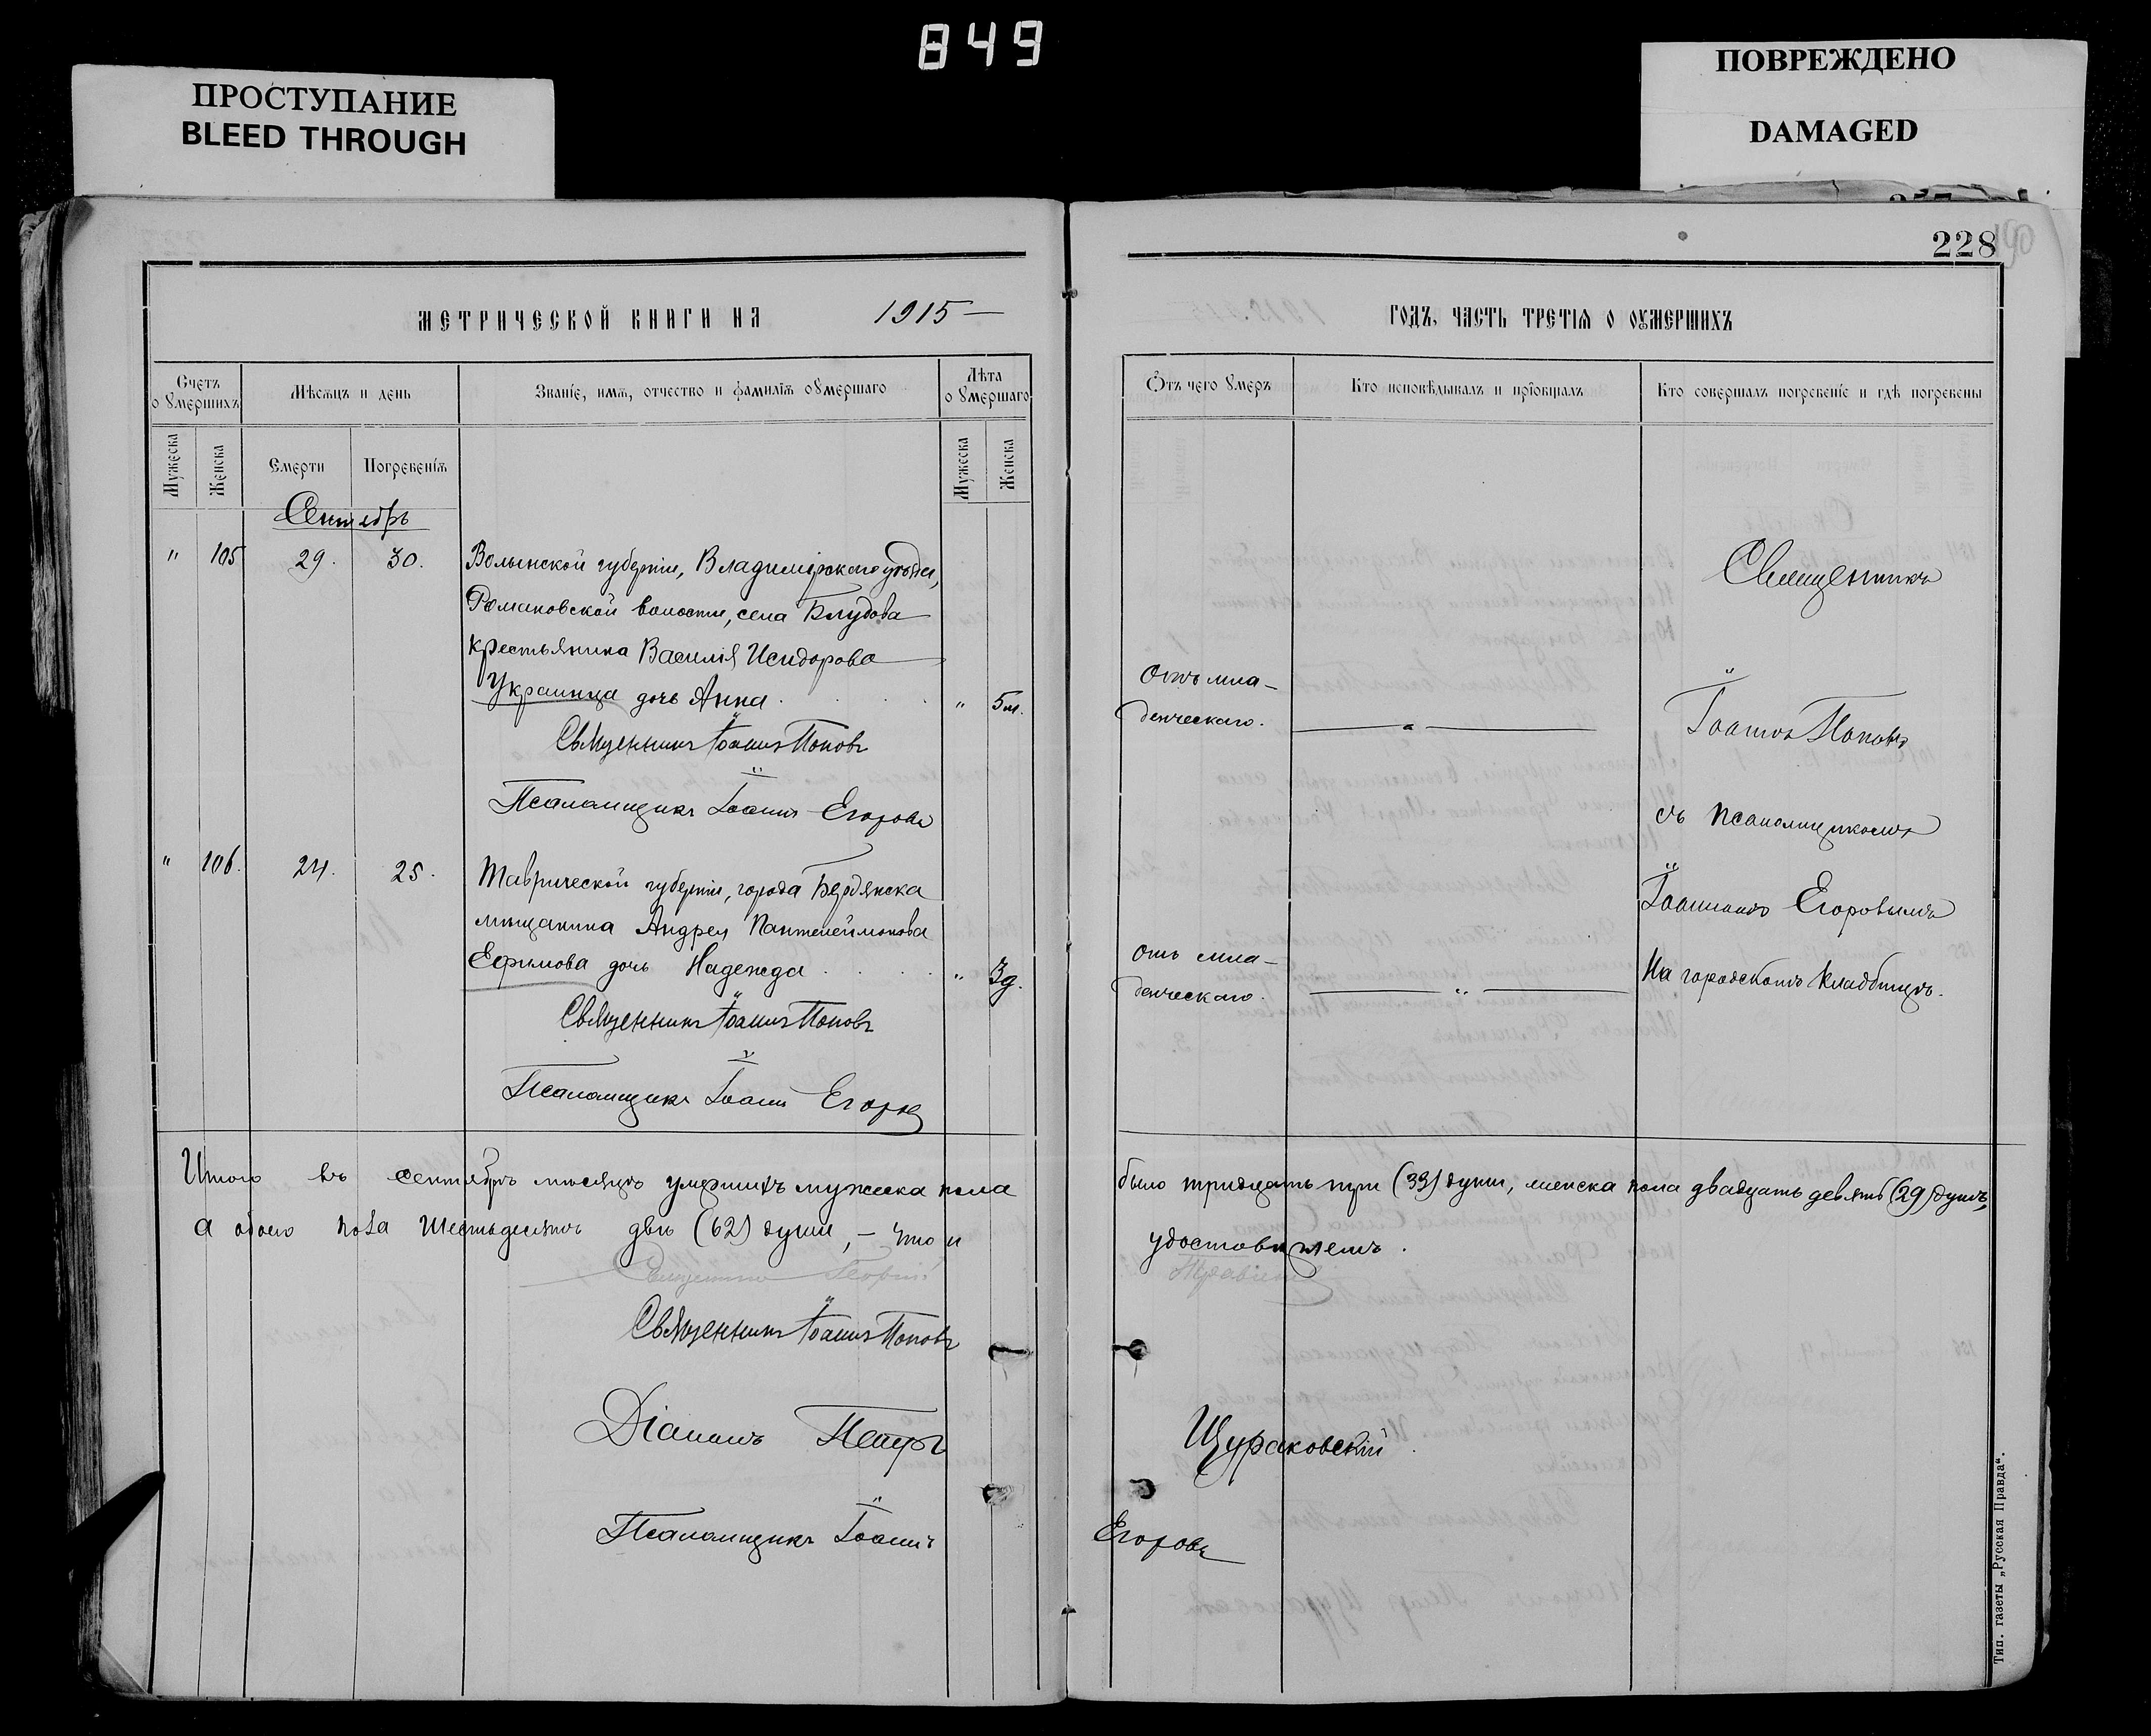 849
ПРОСТУПАНИЕ
BLEED THROUGH
ПОВРЕЖДЕНО
DAMAGED
228
МЕТРИЧЕСКОЙ КНИГИ НА 1915 —
ГОДЪ, ЧАСТЬ ТРЕТІѦ О ОУМЕРШИХЪ
Счетъ о умершихъ
Мѣсѧцъ и день
Званіе, имѧ, отчество и фамиліѧ оумершаго
Лѣта оумершаго
Мужеска
Женска
Смерти
Погребеніѧ
Мужеска
Женска
Отъ чего умеръ
Кто исповѣдывалъ и пріобщалъ
Кто совершалъ погребеніе и гдѣ погребены
Сентябрь
" 105 29. 30. Волынской губерніи, Владимірскаго уѣзда,
Романовской волости, села Блудова
крестьянина Василія Исидорова
Украинца дочь Анна . " 5 м.
Отъ мла-
денческаго.
Священникъ Іоаннъ Поповъ
Псаломщикъ Іоаннъ Егоровъ
" 106. 24. 25. Таврической губерніи, города Бердянска
мѣщанина Андрея Пантелеймонова
Ефимова дочь Надежда . . . " 3 д.
отъ мла-
денческаго.
Священникъ Іоаннъ Поповъ
Псаломщикъ Іоаннъ Егоровъ
Священникъ
Іоаннъ Поповъ
съ псаломщикомъ
Іоанномъ Егоровымъ
На городскомъ кладбищѣ.
Итого въ сентябрѣ мѣсяцѣ умершихъ мужеска пола было тридцать три (33) души, женска пола двадцать девять (29) душъ,
а обоего пола шестьдесятъ двѣ (62) души, — что и удостовѣряемъ.
Священникъ Іоаннъ Поповъ
Діаконъ Петръ Щураковскій
Псаломщикъ Іоаннъ Егоровъ
Тип. газеты „Русская Правда“.